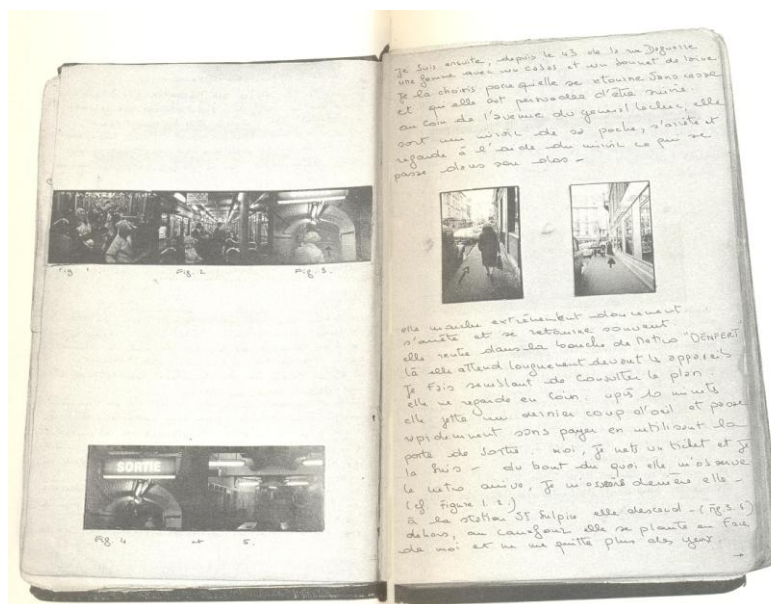 Fig. 2
Fig. 3.
SORTIE
Fig. 4 et 5.
Je suis ensuite, depuis le 43 de la rue Daguerre
une femme avec un cabas et un bonnet de laine
Je la choisis parce qu'elle se retourne sans cesse
et qu'elle est persuadée d'être suivie.
au coin de l'avenue du general Leclerc, elle
sort un miroir de sa poche, s'arrête et
regarde à l'aide du miroir ce qui se
passe dans son dos -
elle marche extrêmement doucement
s'arrête et se retourne souvent
elle rentre dans la bouche de Metro "DENFERT"
là elle attend longuement devant les appareils
Je fais semblant de consulter le plan.
elle me regarde en coin. après 10 minutes
elle jette un dernier coup d'oeil et passe
rapidement sans payer en utilisant la
porte de sortie. moi, je mets un ticket et je
la suis - du bout du quai elle m'observe
le metro arrive, Je m'assois derrière elle -
(cf Figure 1. 2.)
à la station St Sulpice elle descend - (Fig. 3.
dehors, au carrefour elle se plante en face
de moi et ne me quitte plus des yeux.